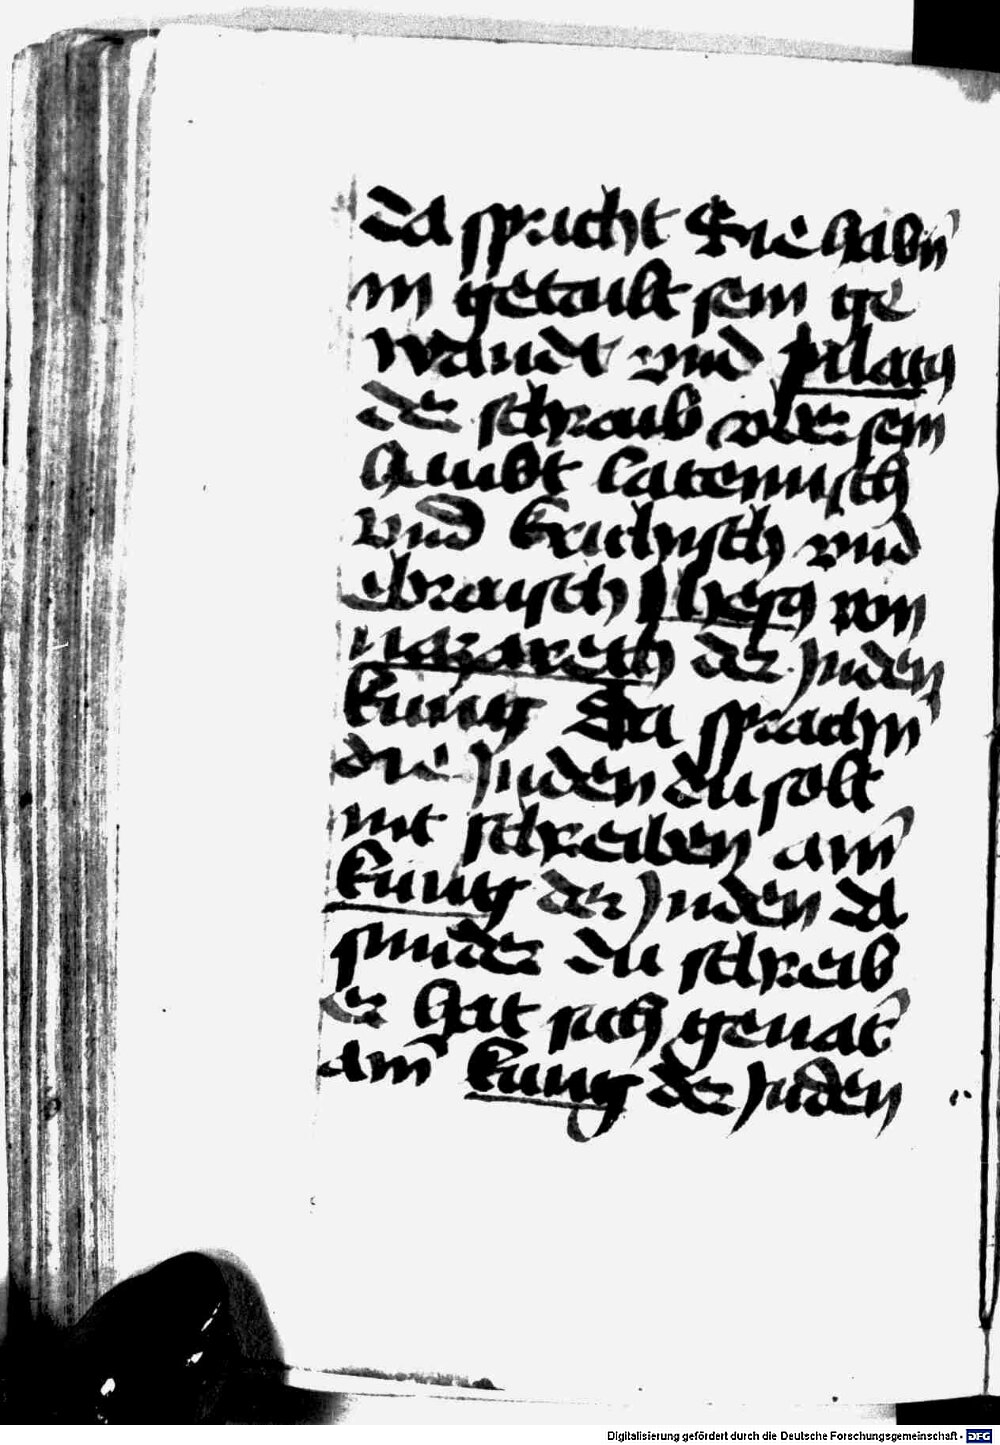 da spricht Sie habn̄
in getailt sein ge
wandt vnd pilatꝯ
der schraib vber sein
haubt lateinisch
vnd krichisch vnd
ebraisch Jhesꝯ von
nazareth der Juden
kunig Da sprachn̄
die Juden du solt
nit schreiben ain̄
kunig der Juden be
sunder du schreib
er hat sich genāt
ain̄ kunig der Juden
Digitalisierung gefördert durch die Deutsche Forschungsgemeinschaft - DFG